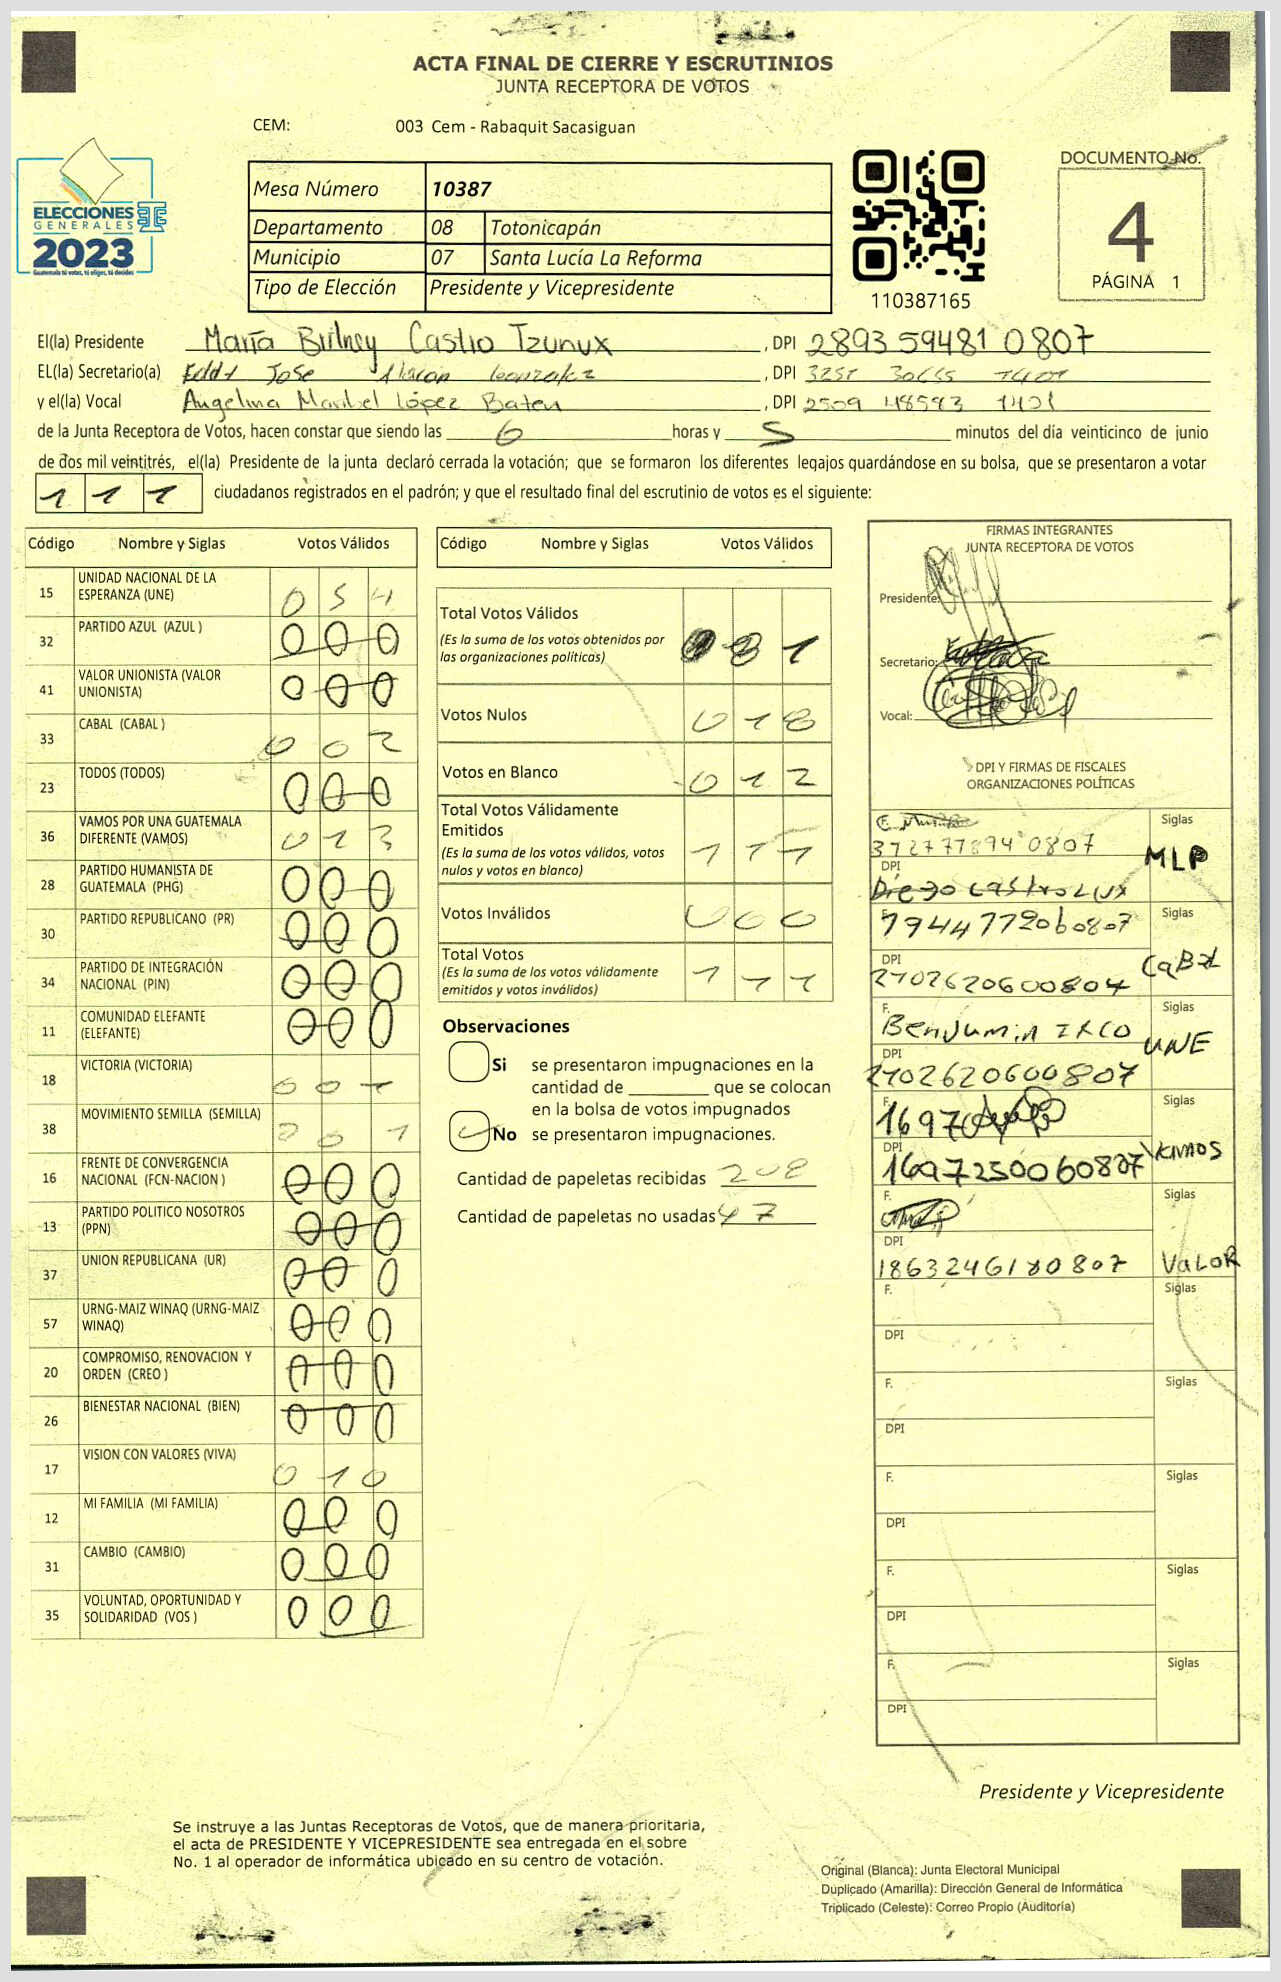 ACTA FINAL DE CIERRE Y ESCRUTINIOS
JUNTA RECEPTORA DE VOTOS
CEM: 003 Cem - Rabaquit Sacasiguan
ELECCIONES
GENERALES
2023
Guatemala tú votas, tú eliges, tú decides
Mesa Número 10387
Departamento 08 Totonicapán
Municipio 07 Santa Lucía La Reforma
Tipo de Elección Presidente y Vicepresidente
110387165
DOCUMENTO No.
4
PÁGINA 1
El(la) Presidente María Birlney Castro Tzunux, DPI 2893 59481 0807
EL(la) Secretario(a) Jose, DPI
y el(la) Vocal Angelina Maribel López Baten, DPI 2509 48593 1401
de la Junta Receptora de Votos, hacen constar que siendo las 6 horas y 5 minutos del día veinticinco de junio
de dos mil veintitrés, el(la) Presidente de la junta declaró cerrada la votación; que se formaron los diferentes legajos guardándose en su bolsa, que se presentaron a votar
1 1 1 ciudadanos registrados en el padrón; y que el resultado final del escrutinio de votos es el siguiente:
Código Nombre y Siglas Votos Válidos
15 UNIDAD NACIONAL DE LA ESPERANZA (UNE) 0 5 4
32 PARTIDO AZUL (AZUL ) 0 0 0
41 VALOR UNIONISTA (VALOR UNIONISTA) 0 0 0
33 CABAL (CABAL ) 0 0 2
23 TODOS (TODOS) 0 0 0
36 VAMOS POR UNA GUATEMALA DIFERENTE (VAMOS) 0 1 3
28 PARTIDO HUMANISTA DE GUATEMALA (PHG) 0 0 0
30 PARTIDO REPUBLICANO (PR) 0 0 0
34 PARTIDO DE INTEGRACIÓN NACIONAL (PIN) 0 0 0
11 COMUNIDAD ELEFANTE (ELEFANTE) 0 0 0
18 VICTORIA (VICTORIA) 0 0 1
38 MOVIMIENTO SEMILLA (SEMILLA) 0 0 1
16 FRENTE DE CONVERGENCIA NACIONAL (FCN-NACION ) 0 0 0
13 PARTIDO POLITICO NOSOTROS (PPN) 0 0 0
37 UNION REPUBLICANA (UR) 0 0 0
57 URNG-MAIZ WINAQ (URNG-MAIZ WINAQ) 0 0 0
20 COMPROMISO, RENOVACION Y ORDEN (CREO ) 0 0 0
26 BIENESTAR NACIONAL (BIEN) 0 0 0
17 VISION CON VALORES (VIVA) 0 1 0
12 MI FAMILIA (MI FAMILIA) 0 0 0
31 CAMBIO (CAMBIO) 0 0 0
35 VOLUNTAD, OPORTUNIDAD Y SOLIDARIDAD (VOS ) 0 0 0
Código Nombre y Siglas Votos Válidos
Total Votos Válidos 0 8 1
(Es la suma de los votos obtenidos por
las organizaciones políticas)
Votos Nulos 0 1 8
Votos en Blanco 0 1 2
Total Votos Válidamente
Emitidos 1 1 1
(Es la suma de los votos válidos, votos
nulos y votos en blanco)
Votos Inválidos 0 0 0
Total Votos 1 1 1
(Es la suma de los votos válidamente
emitidos y votos inválidos)
Observaciones
Si se presentaron impugnaciones en la
cantidad de ________ que se colocan
en la bolsa de votos impugnados
No se presentaron impugnaciones.
Cantidad de papeletas recibidas 208
Cantidad de papeletas no usadas 47
FIRMAS INTEGRANTES
JUNTA RECEPTORA DE VOTOS
Presidente:
Secretario:
Vocal:
DPI Y FIRMAS DE FISCALES
ORGANIZACIONES POLÍTICAS
F. Siglas
372777894 0807 MLP
DPI
Diego Castro Lux
F. 7944772060807 Siglas
DPI 2702620600804 CaBal
F. Benjumin Ixco Siglas
DPI 2702620600807 UNE
F. 1697 Siglas
DPI 1697250060807 VAMOS
F. Siglas
DPI
1863246180807 VALOR
F. Siglas
DPI
F. Siglas
DPI
F. Siglas
DPI
F. Siglas
DPI
F. Siglas
DPI
Presidente y Vicepresidente
Se instruye a las Juntas Receptoras de Votos, que de manera prioritaria,
el acta de PRESIDENTE Y VICEPRESIDENTE sea entregada en el sobre
No. 1 al operador de informática ubicado en su centro de votación.
Original (Blanca): Junta Electoral Municipal
Duplicado (Amarilla): Dirección General de Informática
Triplicado (Celeste): Correo Propio (Auditoría)